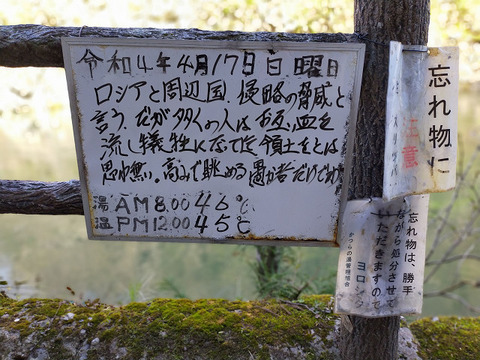 令和4年4月17日日曜日
ロシアと周辺国.侵略の脅威と
言う.だが多くの人はお互血を
流し犠牲になて迄領土をとは
思わ無い。高みで眺める愚か者だけでわ
湯温 AM 8.00 46℃
PM 12.00 45℃
忘れ物に
注意
忘れ物は、勝手
ながら処分させて
いただきますので
ヨロシ
かつらの湯管理組合